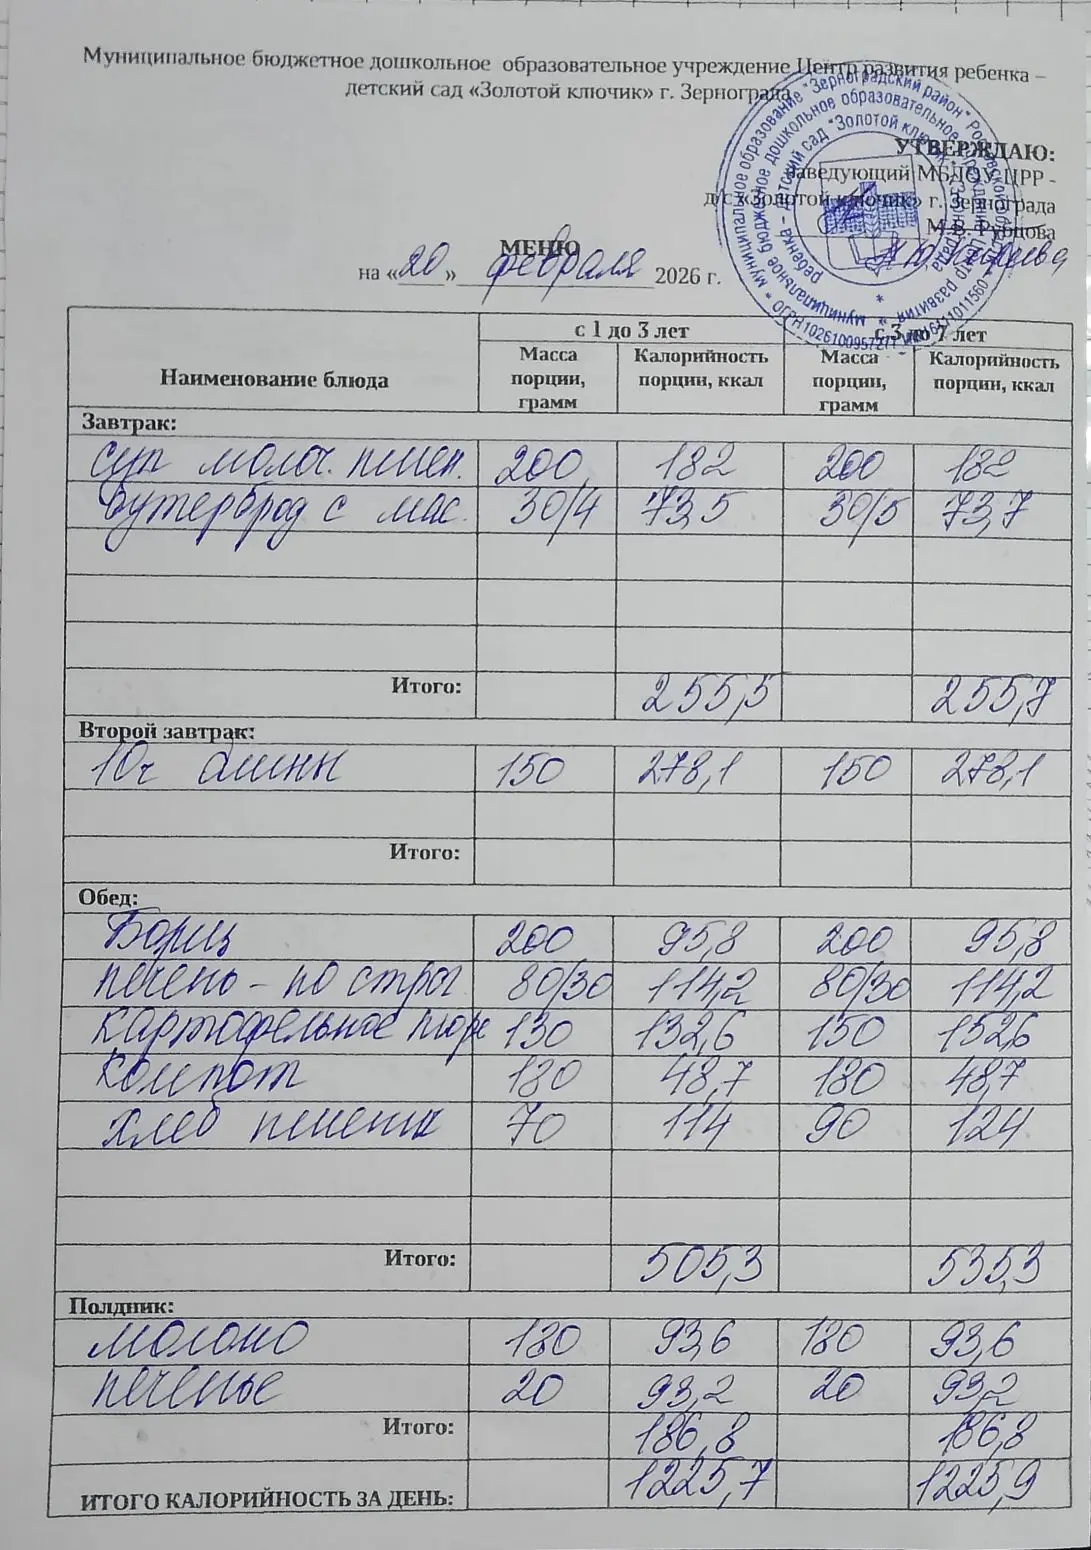 Муниципальное бюджетное дошкольное образовательное учреждение Центр развития ребенка –
детский сад «Золотой ключик» г. Зернограда
УТВЕРЖДАЮ:
заведующий МБДОУ ЦРР -
д/с «Золотой ключик» г. Зернограда
М.В. Рубцова
МЕНЮ
на «20» февраля 2026 г.
Наименование блюда с 1 до 3 лет с 3 до 7 лет
Масса порции, грамм Калорийность порции, ккал Масса порции, грамм Калорийность порции, ккал
Завтрак:
суп молоч. пшен. 200 182 200 182
Бутерброд с мас. 30/4 73,5 30/5 73,7
Итого: 255,5 255,7
Второй завтрак:
10ч блины 150 278,1 150 278,1
Итого:
Обед:
Борщ 200 95,8 200 95,8
печень - по строг 80/30 114,2 80/30 114,2
картофельное пюре 130 132,6 150 152,6
Компот 180 48,7 180 48,7
хлеб пшенич 70 114 90 124
Итого: 505,3 535,3
Полдник:
молоко 180 93,6 180 93,6
печенье 20 93,2 20 93,2
Итого: 186,8 186,8
ИТОГО КАЛОРИЙНОСТЬ ЗА ДЕНЬ: 1225,7 1225,9